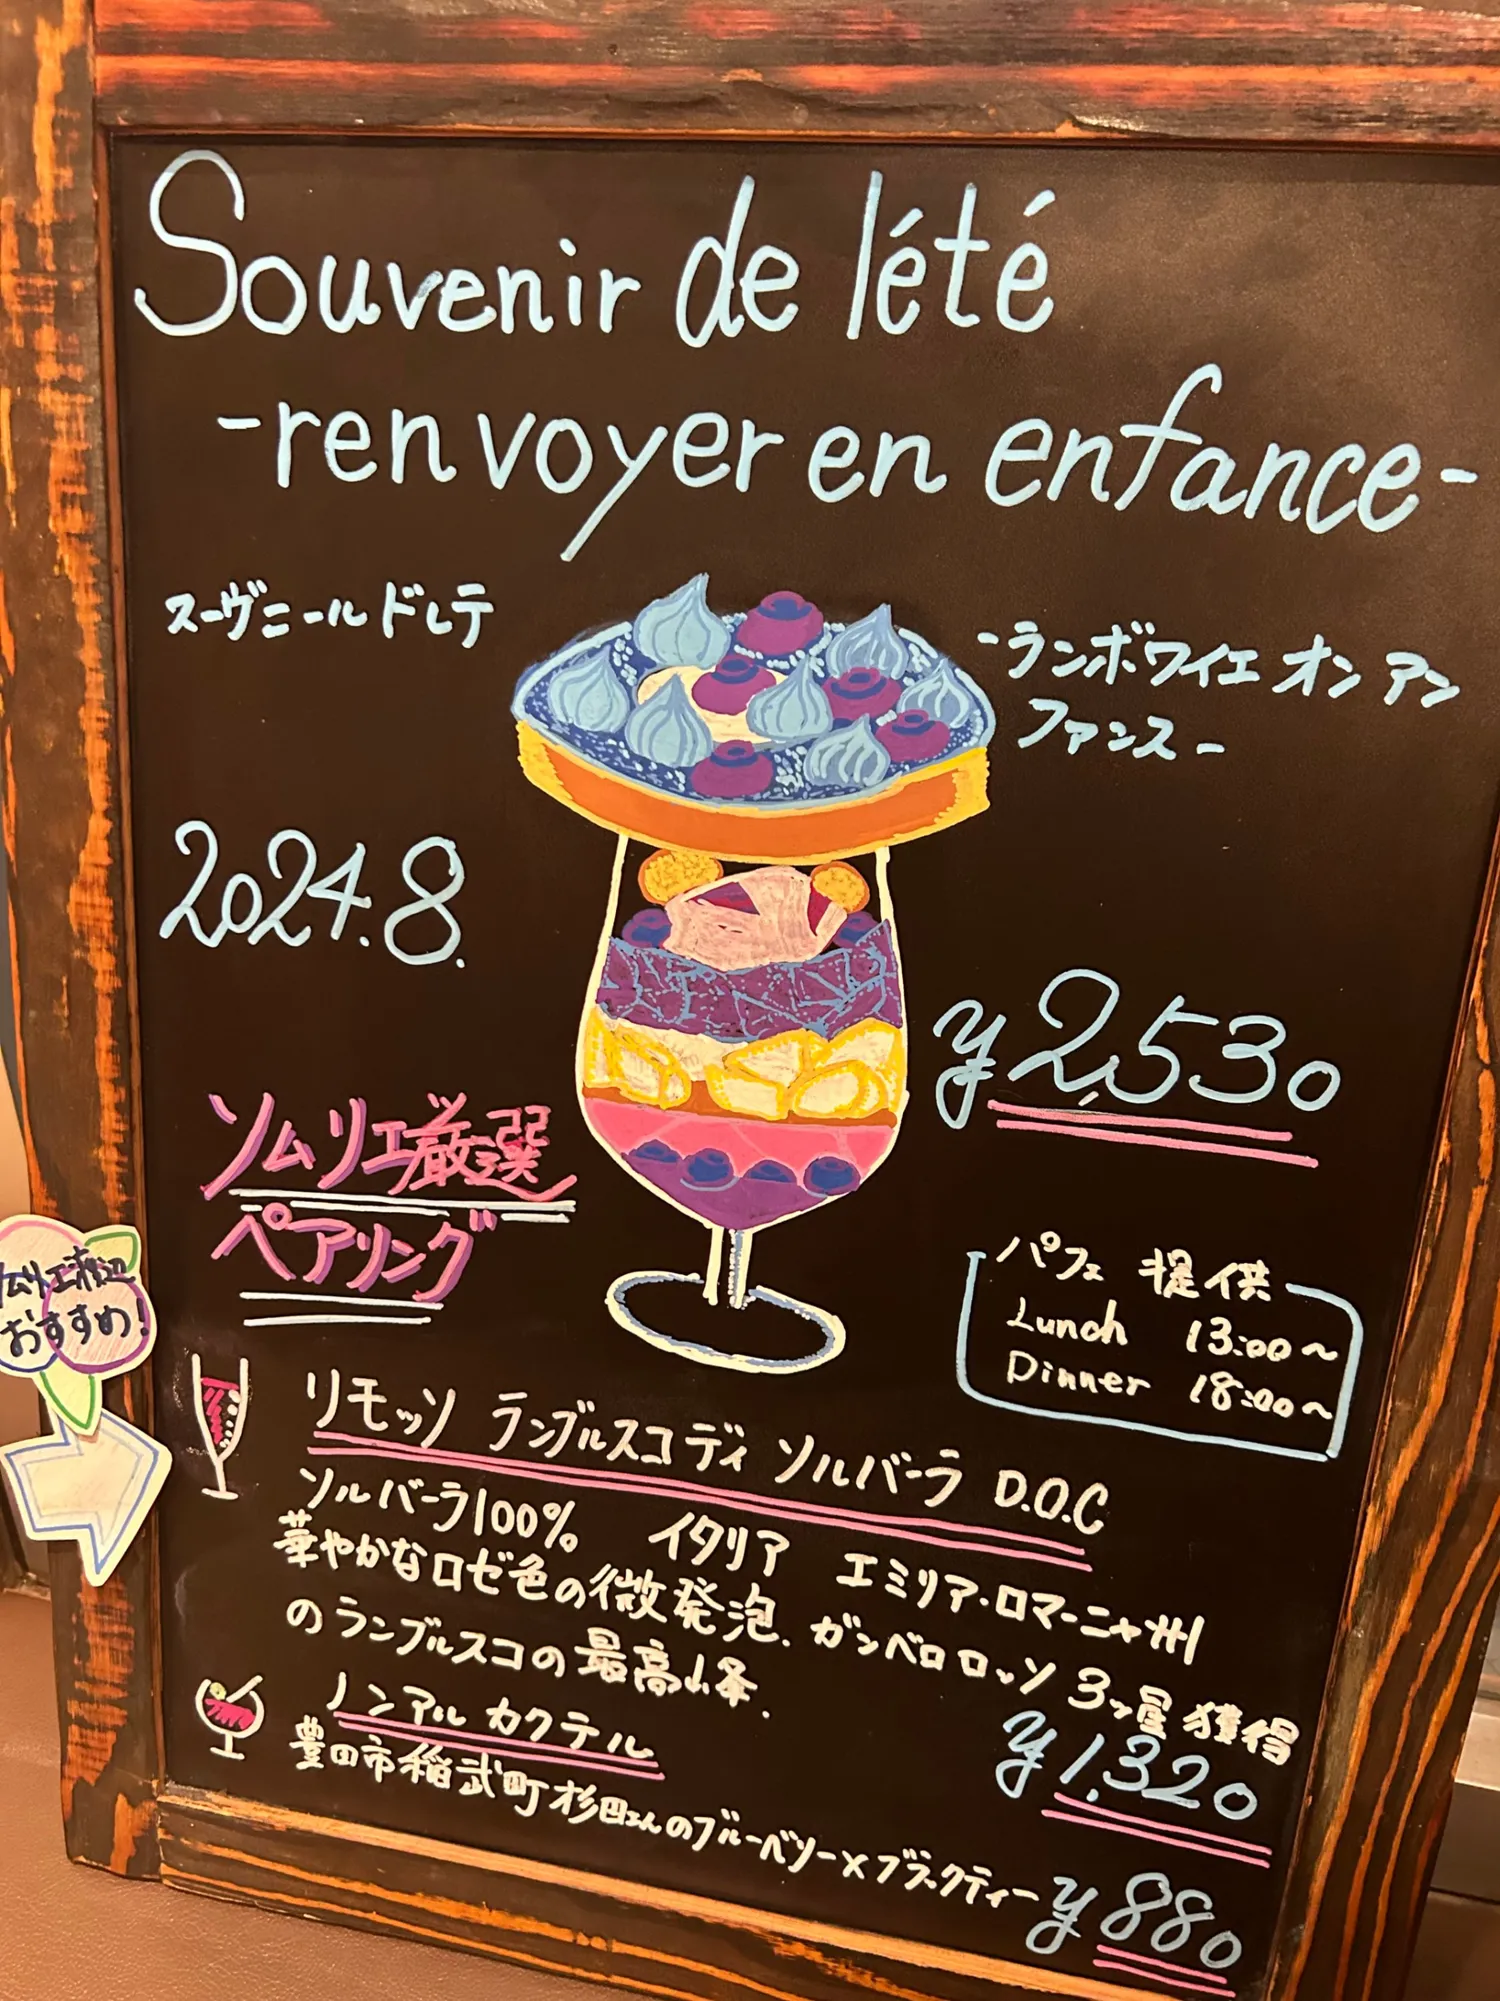 Souvenir de l'été
-renvoyer en enfance-
スーヴニール ドレテ
-ランボワイエ オン アン
ファンス-
2024.8.
¥2,530
ソムリエ厳選
ペアリング
パフェ 提供
Lunch 13:00～
Dinner 18:00～
ソムリエ渡辺
おすすめ!
リモッソ ランブルスコ ディ ソルバーラ D.O.C
ソルバーラ100% イタリア エミリア・ロマーニャ州
華やかなロゼ色の微発泡. ガンベロロッソ 3ッ星 獲得
のランブルスコの最高峰.
¥1,320
ノンアル カクテル
豊田市稲武町杉田さんのブルーベリー×ブラックティー
¥880